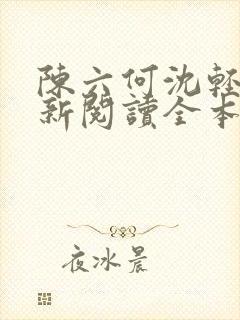 陳六何沈輕
新閱讀全本
夜冰晨